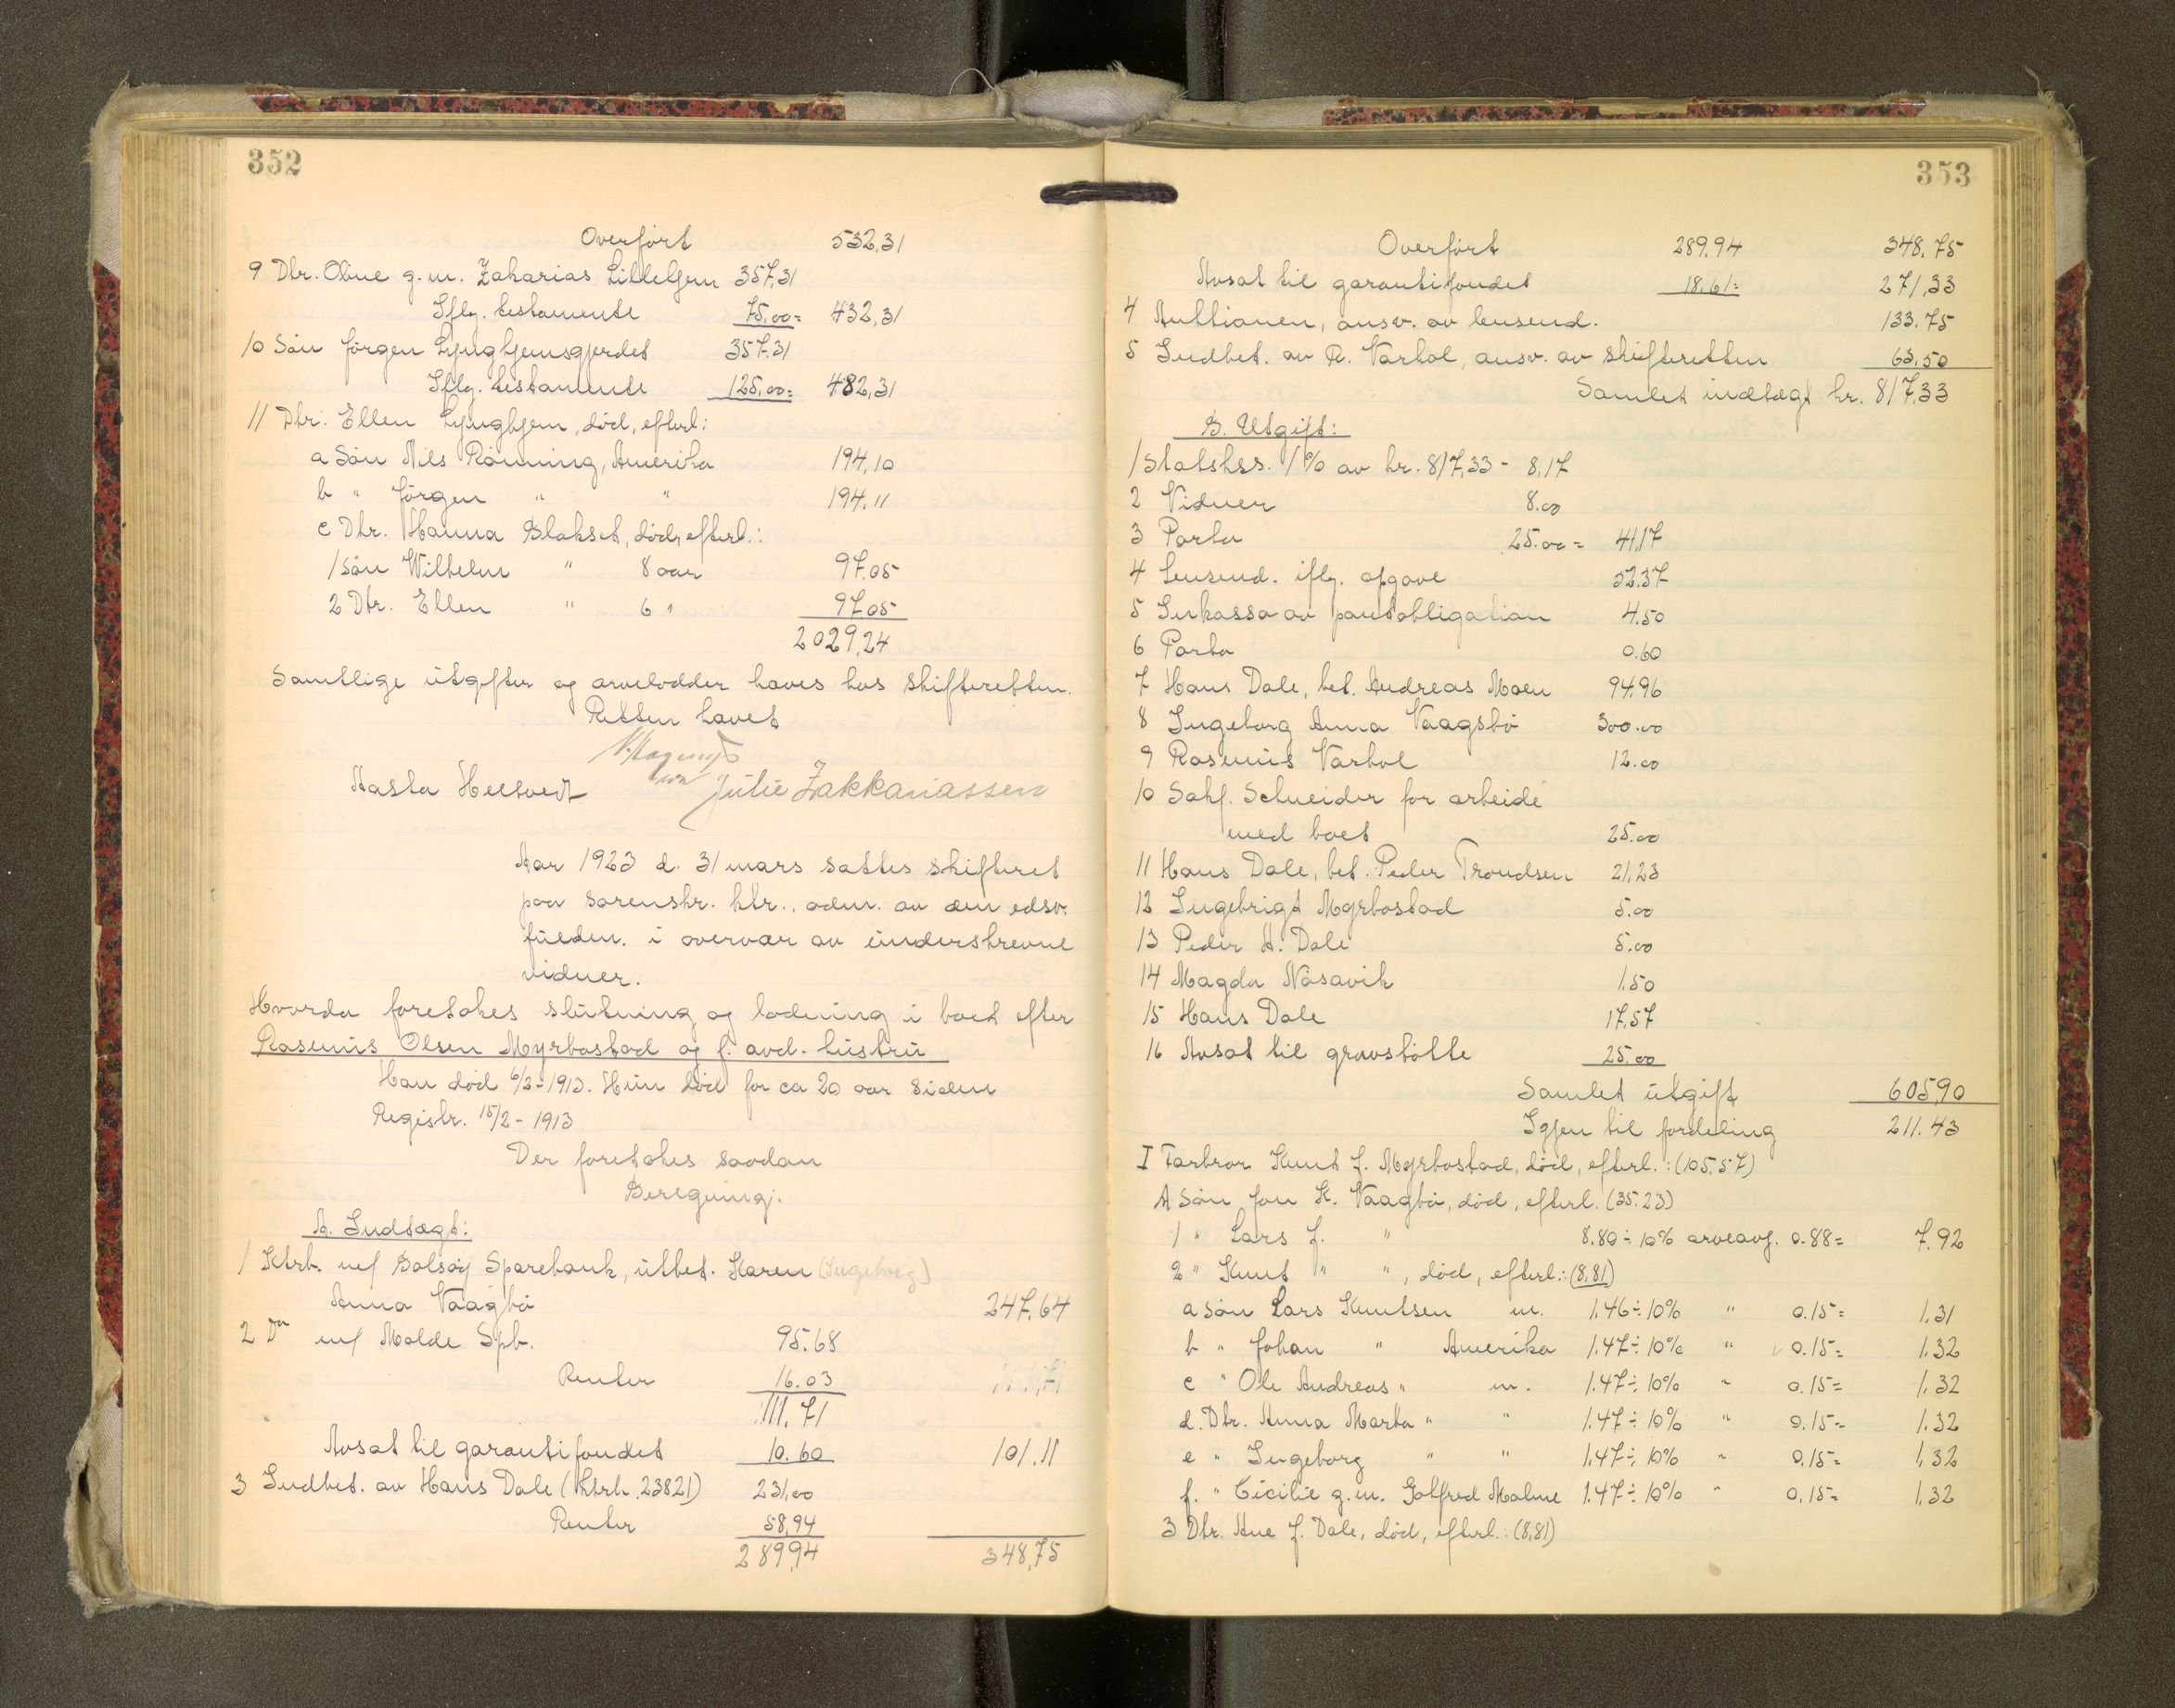 352
Overført 532,31
9 Dtr. Oline g. m. Zakarias Lillehjem 357,31
Iflg. testamente 75,00= 432,31
10 Søn Jørgen Lynghjemsgjerdet 357,31
Iflg. testamente 125,00= 482,31
11 Dtr. Ellen Lynghjem, død, efterl:
a Søn Nils Rønning, Amerika 194,10
b " Jørgen " " 194,11
c Dtr. Hanna Blakset, død, efterl.:
1 Søn Wilhelm " 8 aar 97,05
2 Dtr. Ellen " 6 " 97,05
2029,24
Samtlige utgifter og arvelodder haves hos skifteretten.
Retten hævet
Aasta Heltvedt Julie Zakkariassen
Aar 1923 d. 31 mars sattes skifteret
paa sorenskr. ktr., adm. av den edsv.
fuldm. i overvær av underskrevne
vidner.
Hvorda foretokes slutning og lodning i boet efter
Rasmus Olsen Myrbostad og f. avd. hustru
Han død 6/2-1913. Hun død for ca 20 aar siden
Registr. 15/2-1913
Der foretokes saadan
Beregning:
A. Indtægt:
1 Ktrb. m/ Bolsøy Sparebank, utbet. Karen (Ingeborg)
Anna Vaagbø 247,64
2 Do m/ Molde Spb. 95.68
Renter 16.03
111.71
Avsat til garantifondet 10.60 101.11
3 Indbet. av Hans Dale (Ktrb. 23821) 231,00
Renter 58,94
289,94 348,75
353
Overført 289,94 348,75
Avsat til garantifondet 18,61= 271,33
4 Auktionen, ansv. av lensmd. 133.75
5 Indbet. av R. Varhol, ansv. av skifteretten 63,50
Samlet indtægt kr. 817,33
B. Utgift:
1 Statskss. 1% av kr. 817,33 - 8,17
2 Vidner 8.00
3 Porto 25.00= 41,17
4 Lensmd. iflg. opgave 52,37
5 Inkasso av pantobligation 4.50
6 Porto 0.60
7 Hans Dale, bet. Andreas Moen 94,96
8 Ingeborg Anna Vaagsbø 300.00
9 Rasmus Varhol 12.00
10 Sakf. Schneider for arbeide
med boet 25.00
11 Hans Dale, bet. Peder Trondsen 21,23
12 Ingebrigt Myrbostad 5.00
13 Peder A. Dale 5.00
14 Magda Nåsavik 1.50
15 Hans Dale 17,57
16 Avsat til gravstøtte 25.00
Samlet utgift 605,90
Igjen til fordeling 211.43
I Farbror Knut J. Myrbostad, død, efterl.: (105.57)
A Søn Jon K. Vaagbø, død, efterl. (35.23)
1 " Lars J. " 8.80 ÷ 10% arveavg. 0.88= 7.92
2 " Knut " ", død, efterl.: (8,81)
a Søn Lars Knutsen m. 1.46 ÷ 10% " 0.15= 1.31
b " Johan " Amerika 1.47 ÷ 10% " 0.15= 1.32
c " Ole Andreas " m. 1.47 ÷ 10% " 0.15= 1.32
d. Dtr. Anna Marta " " 1.47 ÷ 10% " 0.15= 1.32
e " Ingeborg " " 1.47 ÷ 10% " 0.15= 1.32
f. " Cicilie g. m. Gotfred Malme 1.47 ÷ 10% " 0.15= 1.32
3 Dtr. Ane J. Dale, død, efterl.: (8,81)